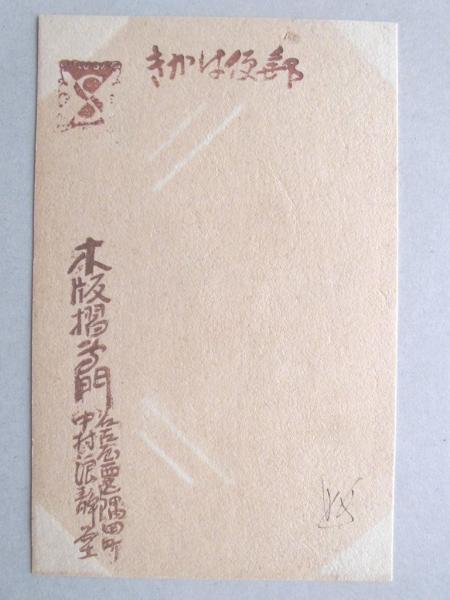 きかは便郵
木版摺専門
名古屋西区隅田町
中村浪静堂